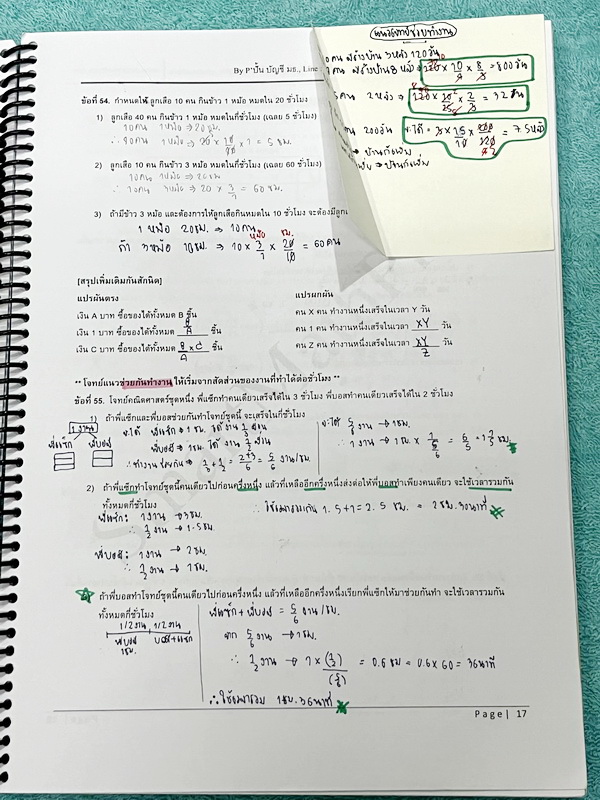 By P'ปั้น บัญชี มธ., Line
แนวโจทย์ช่วยทำงาน
คน สร้างบ้าน 3 หลัง 120 วัน
สร้างบ้าน 8 หลัง
= 800 วัน
คน 2 หลัง ⇒ = 32 วัน
คน 200 วัน ได้ = 75 หลัง
ข้อที่ 54. กำหนดให้ ลูกเสือ 10 คน กินข้าว 1 หม้อ หมดใน 20 ชั่วโมง
1) ลูกเสือ 40 คน กินข้าว 1 หม้อ หมดในกี่ชั่วโมง (เฉลย 5 ชั่วโมง)
10 คน 1 หม้อ ⇒ 20 ชม.
= 5 ชม.
2) ลูกเสือ 10 คน กินข้าว 3 หม้อ หมดในกี่ชั่วโมง (เฉลย 60 ชั่วโมง)
10 คน 1 หม้อ ⇒ 20 ชม
∴ 10 คน 3 หม้อ ⇒ 20 × 3/1 = 60 ชม.
3) ถ้ามีข้าว 3 หม้อ และต้องการให้ลูกเสือกินหมดใน 10 ชั่วโมง จะต้องมีลูกเ
1 หม้อ 20 ชม. ⇒ 10 คน
หม้อ ชม.
ถ้า 3 หม้อ 10 ชม. ⇒ 10 × 3/1 × 20/10 = 60 คน
[สรุปเพิ่มเติมกันสักนิด]
แปรผันตรง แปรผกผัน
เงิน A บาท ซื้อของได้ทั้งหมด B ชิ้น คน X คน ทำงานหนึ่งเสร็จในเวลา Y วัน
เงิน 1 บาท ซื้อของได้ทั้งหมด B/A ชิ้น คน 1 คน ทำงานหนึ่งเสร็จในเวลา XY วัน
เงิน C บาท ซื้อของได้ทั้งหมด B × C/A ชิ้น คน Z คน ทำงานหนึ่งเสร็จในเวลา XY/Z วัน
** โจทย์แนวช่วยกันทำงาน ให้เริ่มจากสัดส่วนของงานที่ทำได้ต่อชั่วโมง **
ข้อที่ 55. โจทย์คณิตศาสตร์ชุดหนึ่ง พี่แซ็กทำคนเดียวเสร็จได้ใน 3 ชั่วโมง พี่บอสทำคนเดียวเสร็จได้ใน 2 ชั่วโมง
1) ถ้าพี่แซ็กและพี่บอสช่วยกันทำโจทย์ชุดนี้ จะเสร็จในกี่ชั่วโมง
1 งาน
พี่แซ็ก พี่บอส
จะได้ พี่แซ็ก ⇒ 1 ชม. ได้งาน 1/3 งาน
พี่บอส ⇒ 1 ชม. ได้ งาน 1/2 งาน
∴ ทำงานช่วยกัน ⇒ 1/3 + 1/2 = 2+3/6 = 5/6 งาน/ชม.
จะได้ 5/6 งาน → 1 ชม.
2) ถ้าพี่แซ็กทำโจทย์ชุดนี้คนเดียวไปก่อนครึ่งหนึ่ง แล้วที่เหลืออีกครึ่งหนึ่งส่งต่อให้พี่บอสทำเพียงคนเดียว จะใช้เวลารวมกัน
ทั้งหมดกี่ชั่วโมง
∴ ใช้เวลารวมกัน 1.5 + 1 = 2.5 ชม. = 2 ชม. 30 นาที
พี่แซ็ก: 1 งาน → 3 ชม.
∴ 1/2 งาน → 1.5 ชม.
พี่บอส: 1 งาน → 2 ชม.
∴ 1/2 งาน → 1 ชม.
ถ้าพี่บอสทำโจทย์ชุดนี้คนเดียวไปก่อนครึ่งหนึ่ง แล้วที่เหลืออีกครึ่งหนึ่งเรียกพี่แซ็กให้มาช่วยกันทำ จะใช้เวลารวมกัน
ทั้งหมดกี่ชั่วโมง
1/2 งาน 1/2 งาน
พี่บอส บอส+แซ็ก
1 ชม.
พี่แซ็ก + พี่บอส = 5/6 งาน/ชม.
จาก 5/6 งาน → 1 ชม.
∴ 1/2 งาน → 1 × (1/2)/(5/6) = 0.6 ชม = 0.6 × 60 = 36 นาที
∴ ใช้เวลารวม 1 ชม. 36 นาที
Page | 17